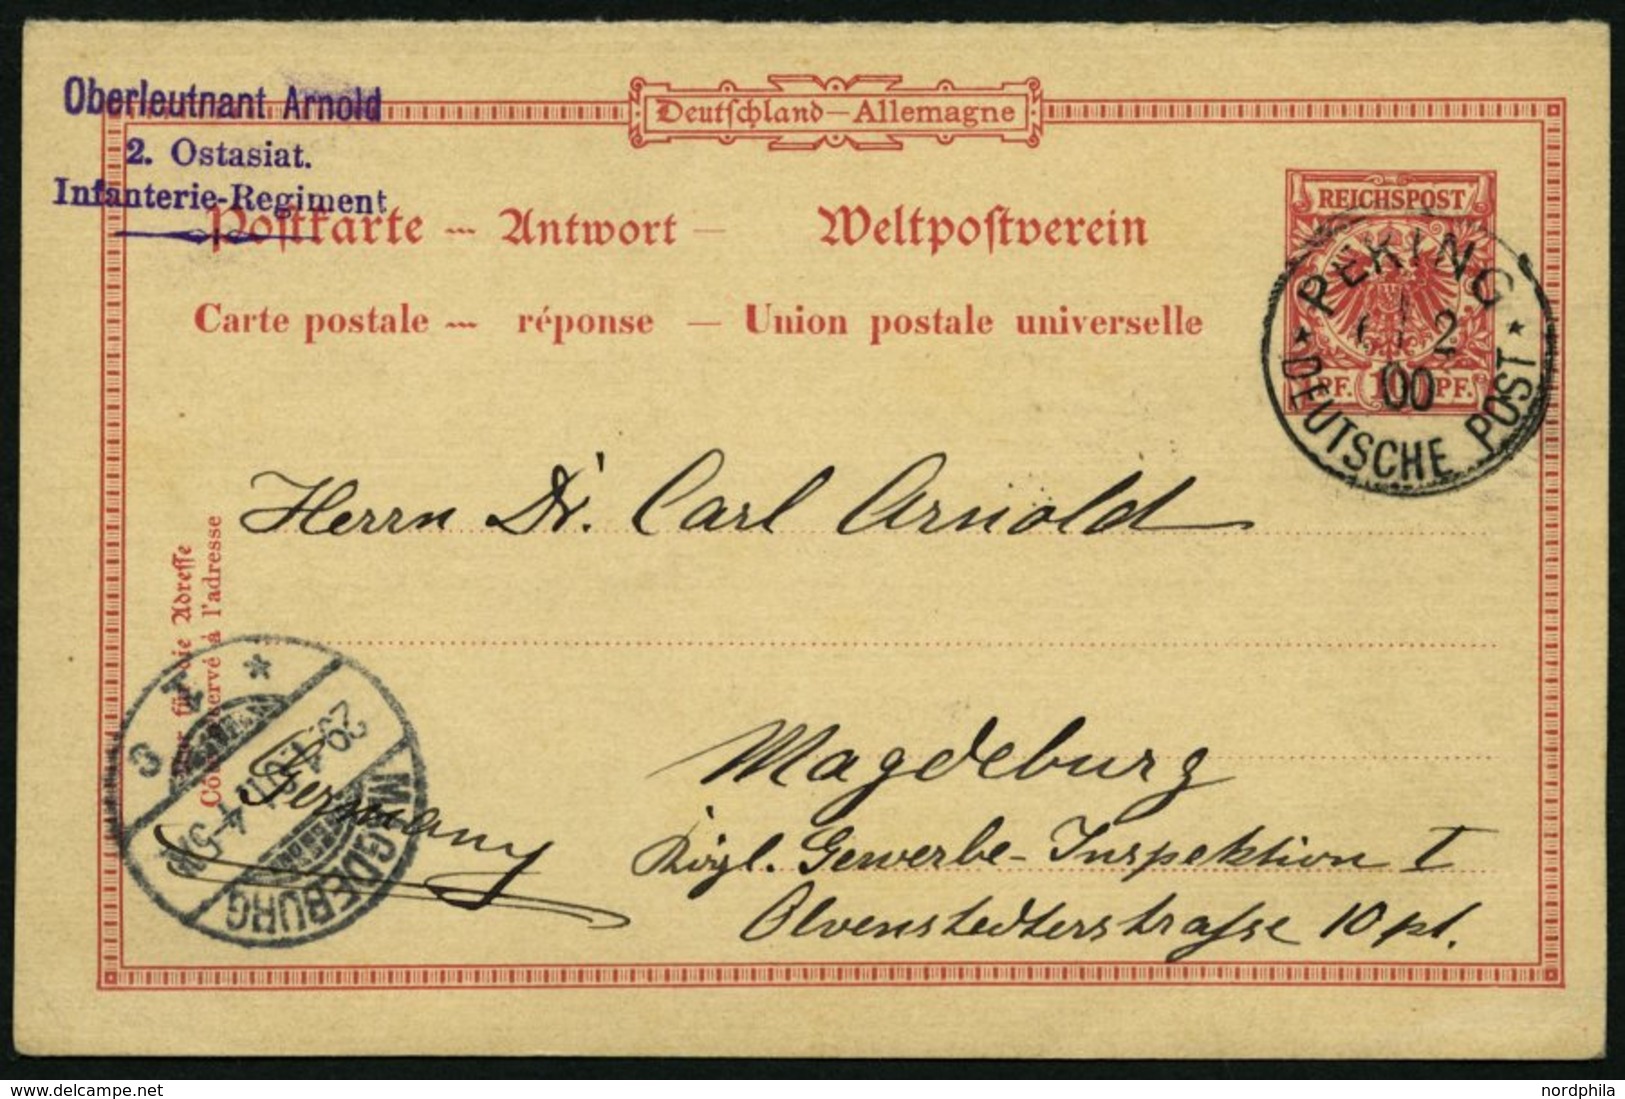 Oberleutnant Arnold
2. Ostasiat.
Infanterie-Regiment
Deutschland—Allemagne
Postkarte — Antwort — Weltpostverein
Carte postale — réponse — Union postale universelle
REICHSPOST
PF. 10 PF.
PEKING
2
00
DEUTSCHE POST
Herrn Dr. Carl Arnold
Magdeburg
Germany
Kgl. Gewerbe-Inspektion I
Olvenstedterstraße 10 pt.
Nur für die Adresse
Côté réservé à l'adresse
MAGDEBURG
4-5N
nordphila